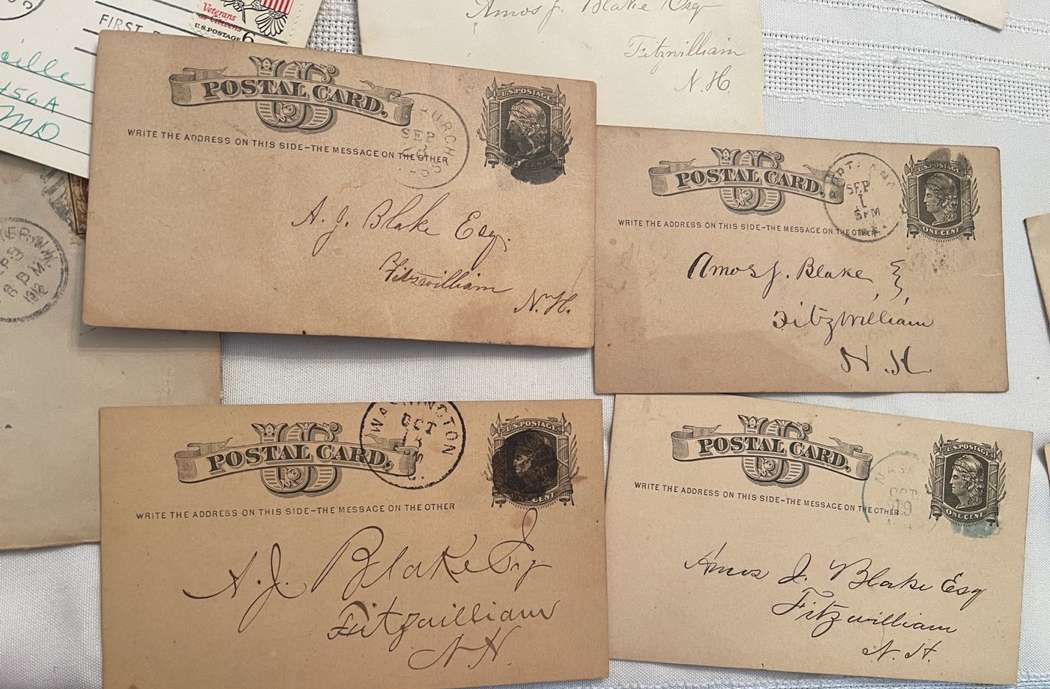 Veterans
as Citizens
U.S. POSTAGE 6
ille
456A
MD
Amos J. Blake Esq
Fitzwilliam
N.H.
US
POSTAL CARD.
WRITE THE ADDRESS ON THIS SIDE-THE MESSAGE ON THE OTHER
SEP
U.S. POSTAGE
A. J. Blake Esq.
Fitzwilliam
N.H.
US
POSTAL CARD.
WRITE THE ADDRESS ON THIS SIDE-THE MESSAGE ON THE OTHER
SEP
1
U.S. POSTAGE
ONE CENT
Amos J. Blake,
Fitzwilliam
N.H.
US
POSTAL CARD.
WRITE THE ADDRESS ON THIS SIDE-THE MESSAGE ON THE OTHER
WASHINGTON
OCT
13
U.S. POSTAGE
ONE CENT
A. J. Blake Esq
Fitzwilliam
N.H.
US
POSTAL CARD.
WRITE THE ADDRESS ON THIS SIDE-THE MESSAGE ON THE OTHER
OCT
19
U.S. POSTAGE
ONE CENT
Amos J. Blake Esq
Fitzwilliam
N.H.
1912